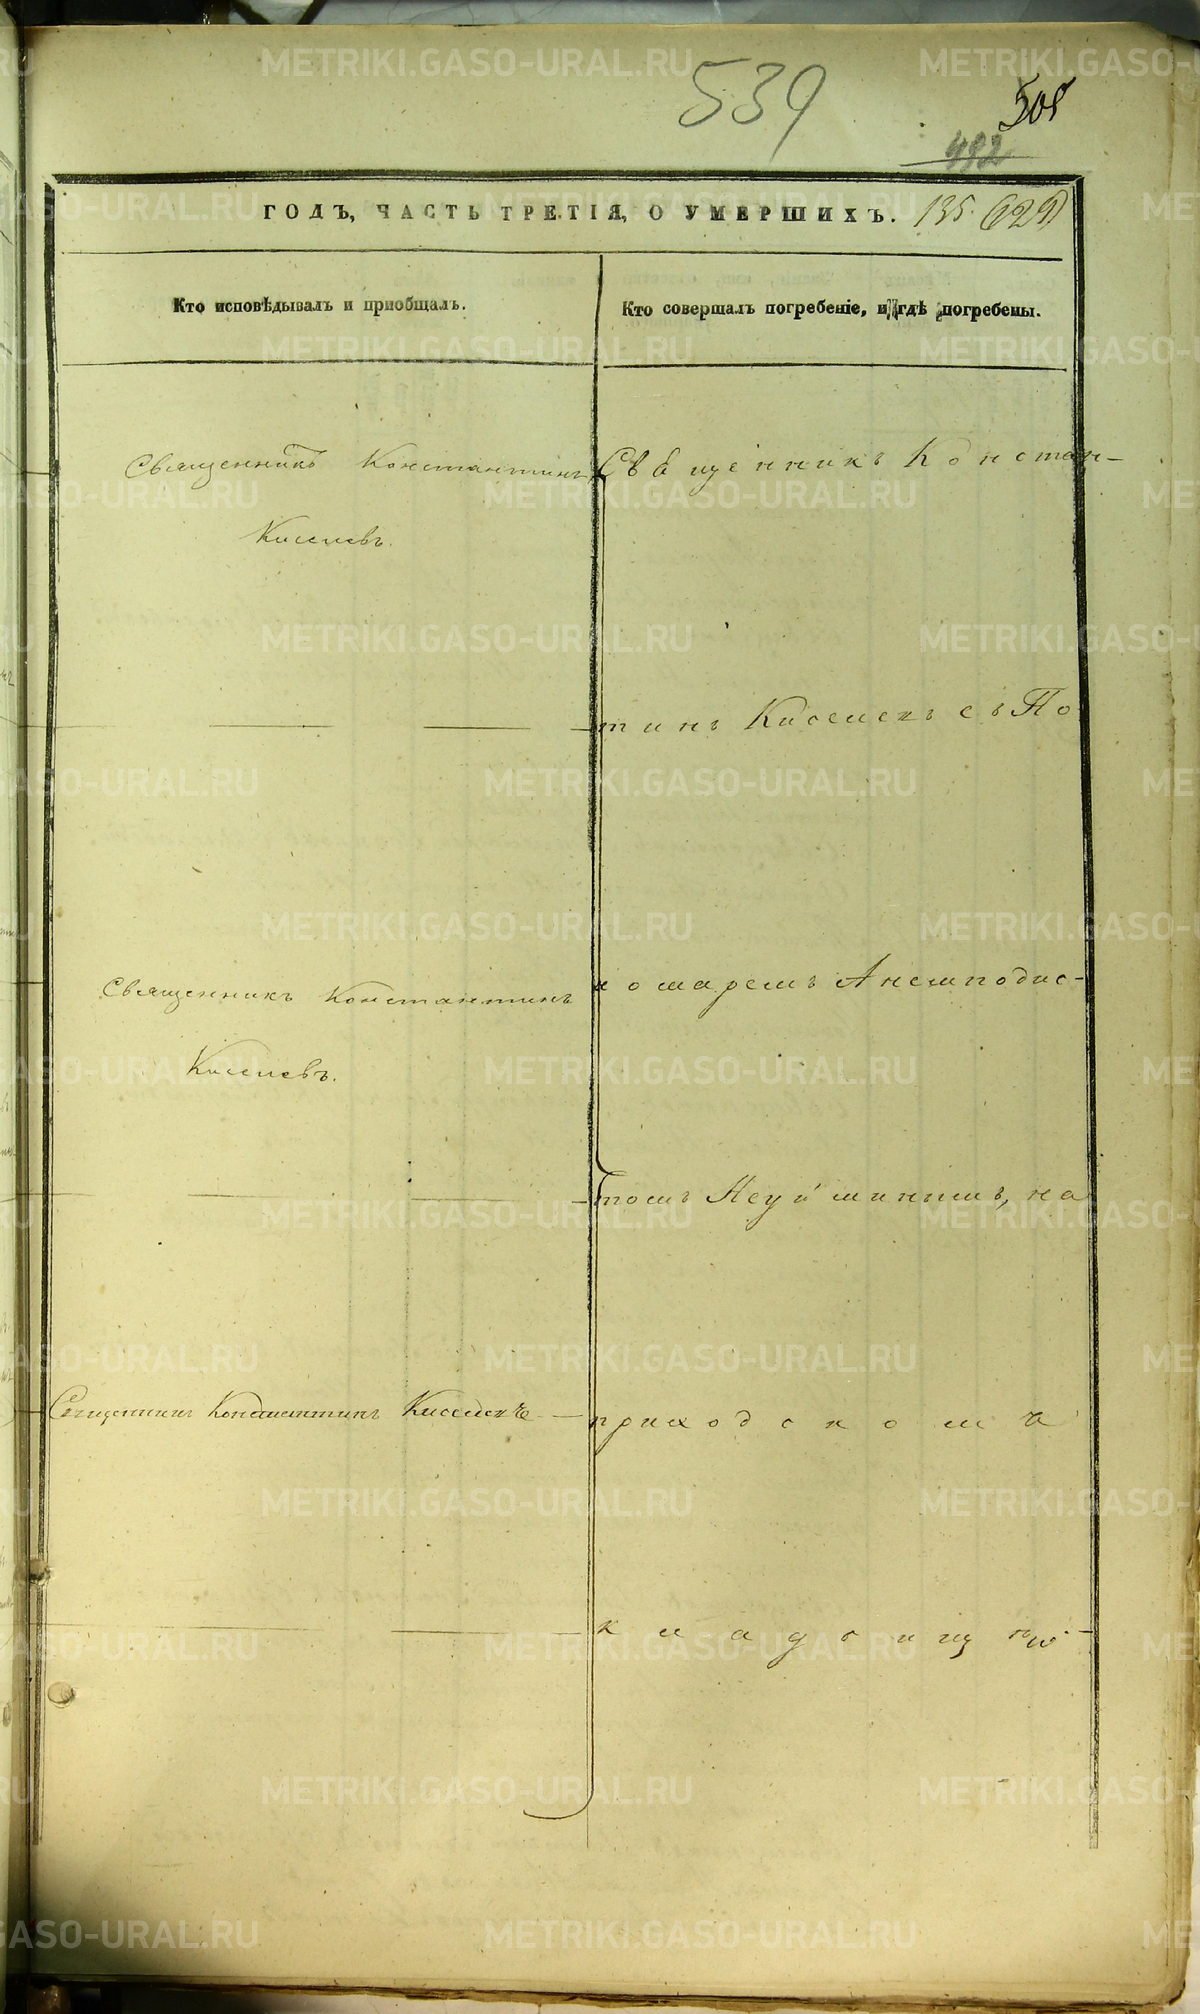 539
505
492
ГОДЪ, ЧАСТЬ ТРЕТІЯ, О УМЕРШИХЪ. 135. 629
Кто исповѣдывалъ и приобщалъ.
Кто совершалъ погребеніе, и гдѣ погребены.
Священникъ Константинъ
Киселевъ.
Священникъ Констан-
тинъ Киселевъ съ По
Священникъ Константинъ
Киселевъ.
номаремъ Анемподис-
томъ Неуйминымъ, на
Священникъ Константинъ Киселевъ
приходскомъ
кладбищѣ
METRIKI.GASO-URAL.RU